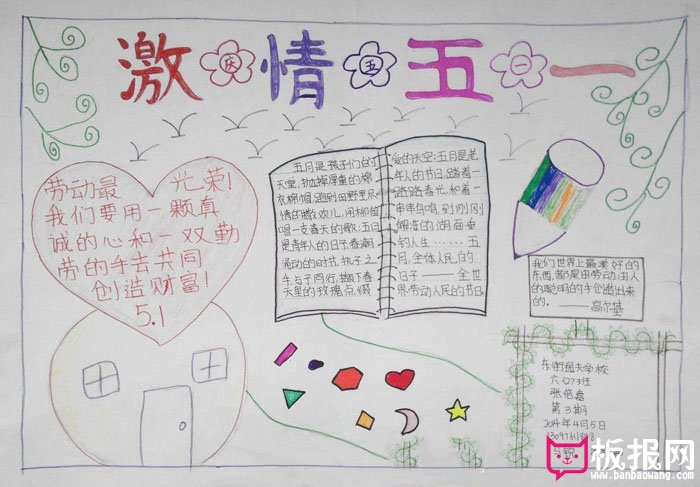 激情五一
庆五一
劳动最光荣!
我们要用一颗真
诚的心和一双勤
劳的手去共同
创造财富!
5.1
五月是孩子们的
天堂,抛掉厚重的棉
衣棉帽,跑到田野里尽
情的撒欢儿,用柳笛
唱一支春天的歌;五月
是青年人的日子,春潮
涌动的时节,执子之
手,与子同行,撷下春
天里的玫瑰点缀
爱的天空;五月是老
年人的节日,踏着一
路路春光和着一
串串鸟鸣,到刚刚
解冻的湖面垂
钓人生……五
月,全体人民的
日子——全世
界劳动人民的节日
我们世界上最美好的
东西,都是由劳动、由人
的聪明的手创造出来
的。——高尔基
六(2)班
第3期
2014年4月5日
板报网
www.banbaowang.com